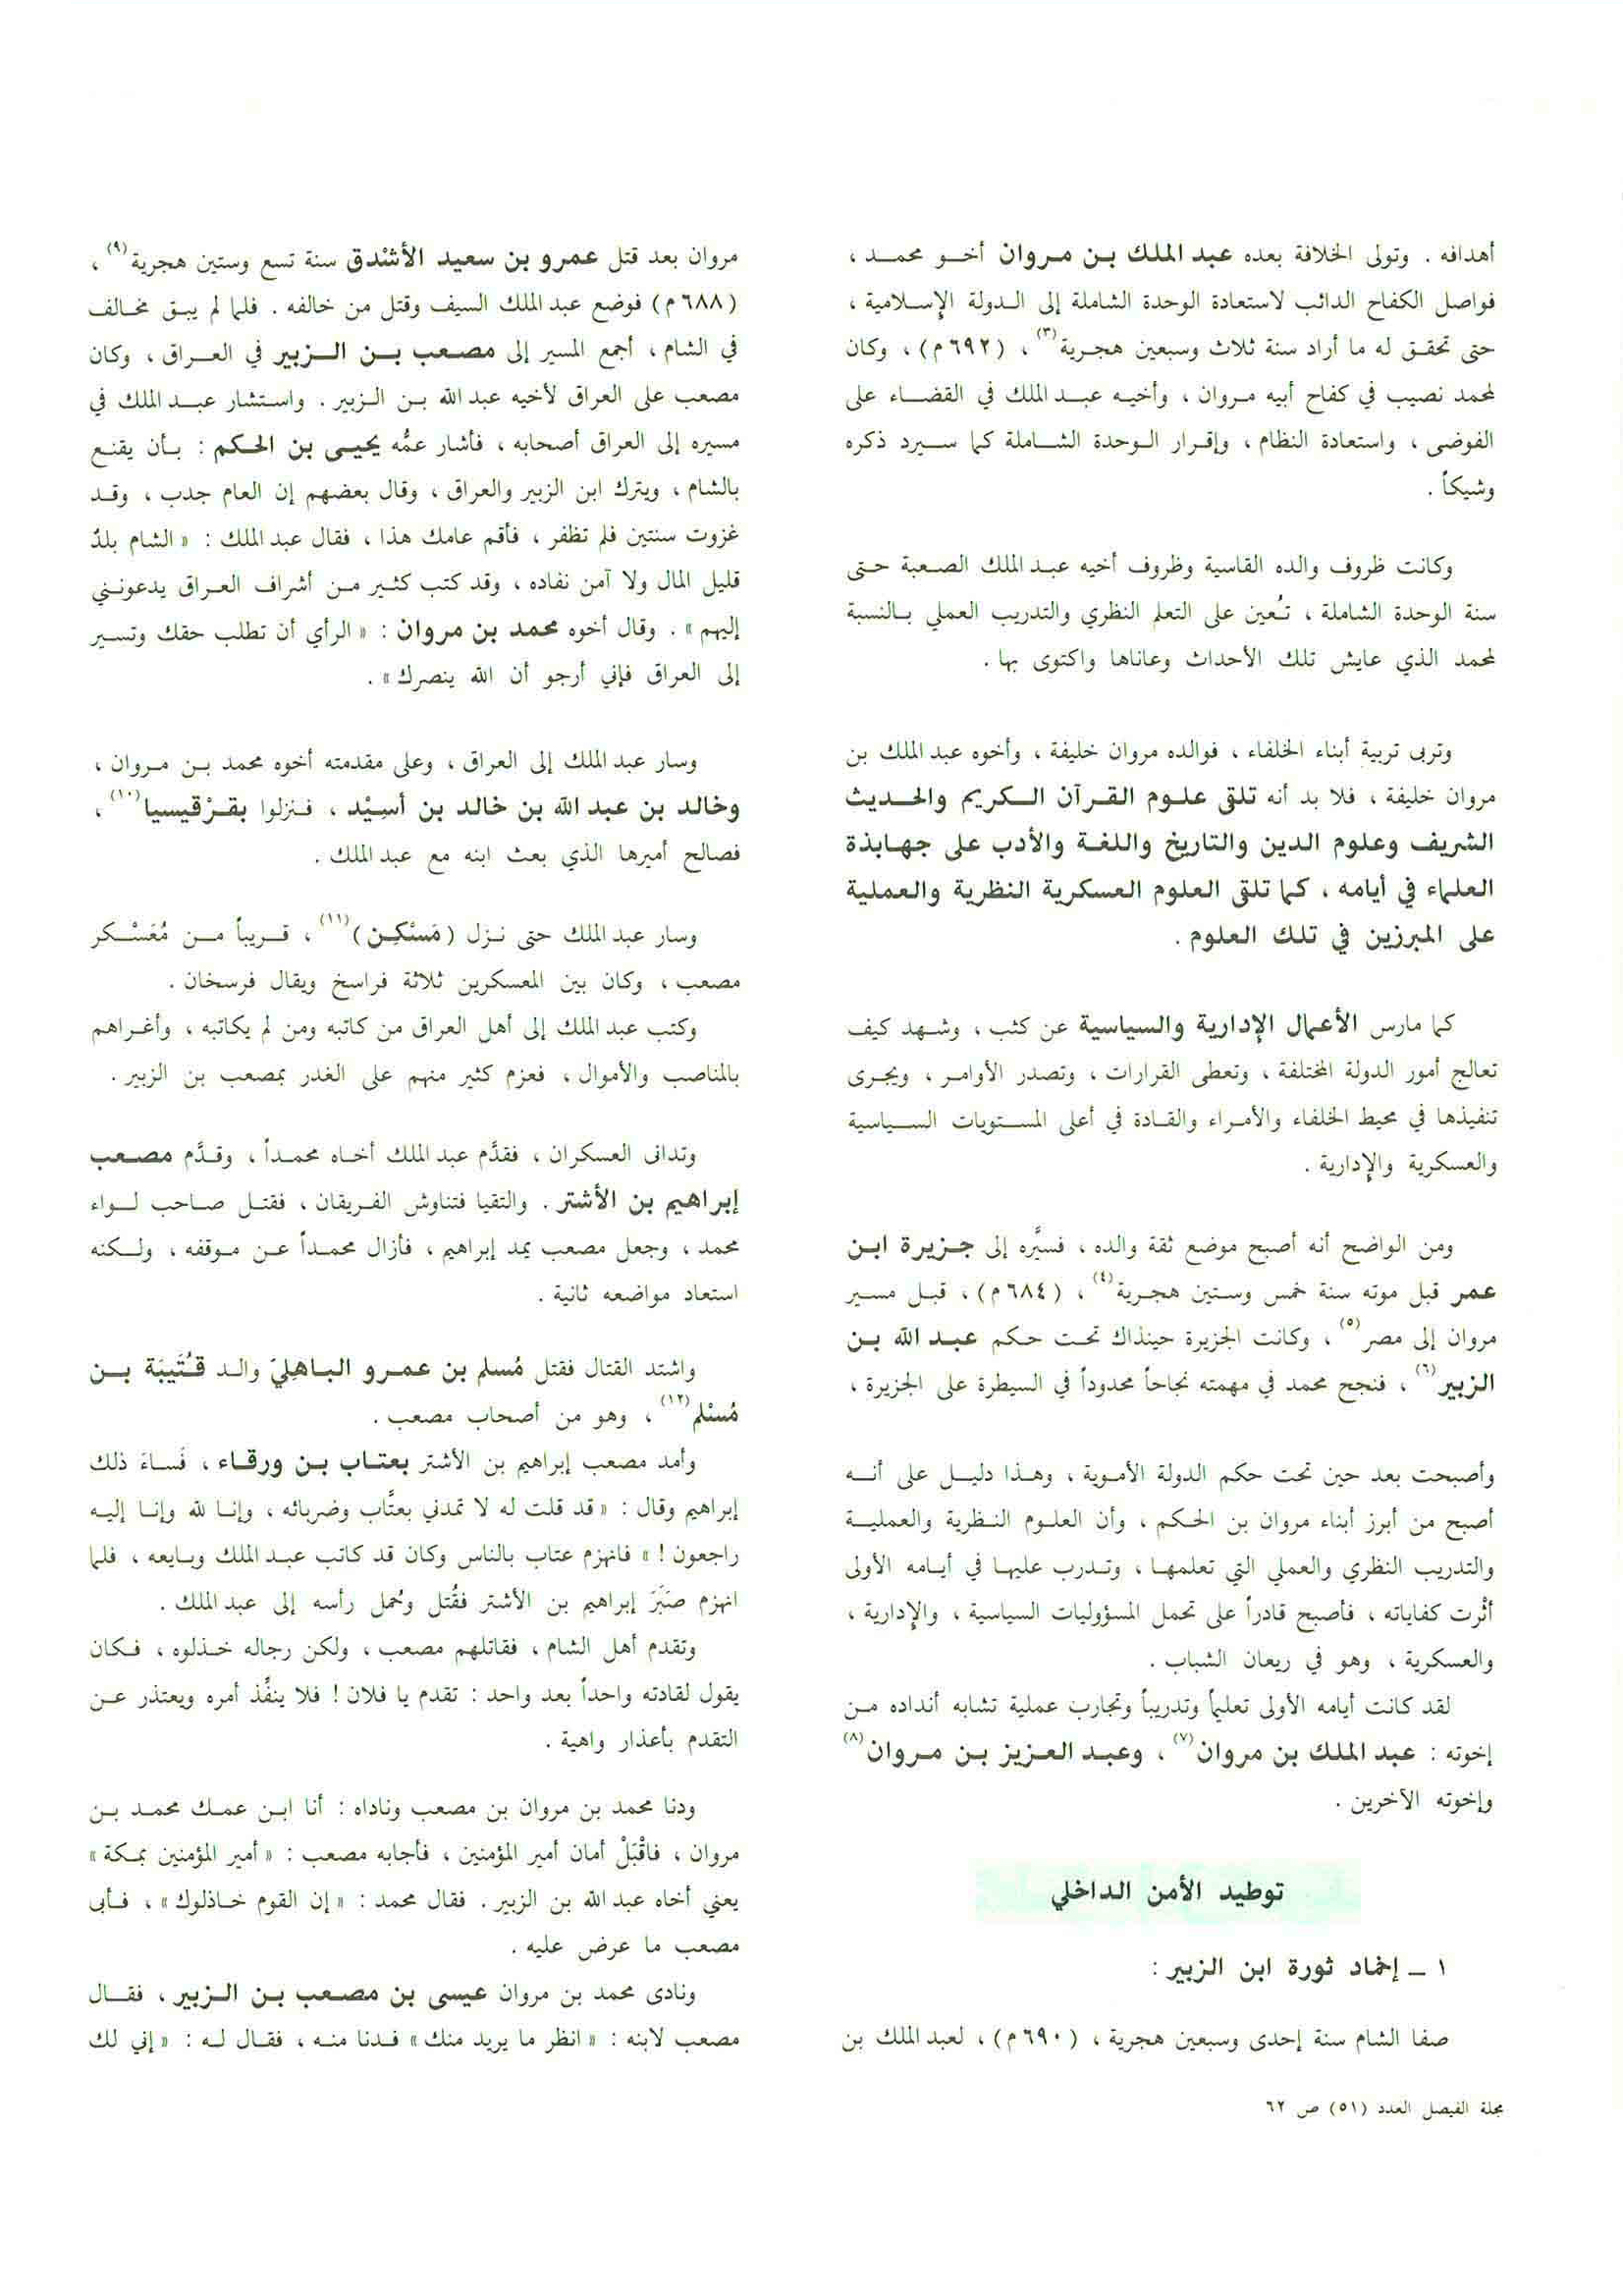 أهدافه . وتولى الخلافة بعده عبد الملك بن مروان أخو محمد ،
فواصل الكفاح الدائب لاستعادة الوحدة الشاملة إلى الدولة الإسلامية ،
حتى تحقق له ما أراد سنة ثلاث وسبعين هجرية(٣) ، (٦٩٢ م) ، وكان
لمحمد نصيب في كفاح أبيه مروان ، وأخيه عبد الملك في القضاء على
الفوضى ، واستعادة النظام ، وإقرار الوحدة الشاملة كما سيرد ذكره
وشيكاً .
وكانت ظروف والده القاسية وظروف أخيه عبد الملك الصعبة حتى
سنة الوحدة الشاملة ، تُعين على التعلم النظري والتدريب العملي بالنسبة
لمحمد الذي عايش تلك الأحداث وعاناها واكتوى بها .
وتربى تربية أبناء الخلفاء ، فوالده مروان خليفة ، وأخوه عبد الملك بن
مروان خليفة ، فلا بد أنه تلقى علوم القرآن الكريم والحديث
الشريف وعلوم الدين والتاريخ واللغة والأدب على جهابذة
العلماء في أيامه ، كما تلقى العلوم العسكرية النظرية والعملية
على المبرزين في تلك العلوم .
كما مارس الأعمال الإدارية والسياسية عن كثب ، وشهد كيف
تعالج أمور الدولة المختلفة ، وتعطى القرارات ، وتصدر الأوامر ، ويجرى
تنفيذها في محيط الخلفاء والأمراء والقادة في أعلى المستويات السياسية
والعسكرية والإدارية .
ومن الواضح أنه أصبح موضع ثقة والده ، فسيَّره إلى جزيرة ابن
عمر قبل موته سنة خمس وستين هجرية(٤) ، (٦٨٤ م) ، قبل مسير
مروان إلى مصر(٥) ، وكانت الجزيرة حينذاك تحت حكم عبد الله بن
الزبير(٦) ، فنجح محمد في مهمته نجاحاً محدوداً في السيطرة على الجزيرة ،
وأصبحت بعد حين تحت حكم الدولة الأموية ، وهذا دليل على أنه
أصبح من أبرز أبناء مروان بن الحكم ، وأن العلوم النظرية والعملية
والتدريب النظري والعملي التي تعلمها ، وتدرب عليها في أيامه الأولى
أثْرت كفاياته ، فأصبح قادراً على تحمل المسؤوليات السياسية ، والإدارية ،
والعسكرية ، وهو في ريعان الشباب .
لقد كانت أيامه الأولى تعليماً وتدريباً وتجارب عملية تشابه أنداده من
إخوته : عبد الملك بن مروان(٧) ، وعبد العزيز بن مروان(٨)
وإخوته الآخرين .
توطيد الأمن الداخلي
١ ـ إخماد ثورة ابن الزبير :
صفا الشام سنة إحدى وسبعين هجرية ، (٦٩٠ م) ، لعبد الملك بن
مروان بعد قتل عمرو بن سعيد الأشْدق سنة تسع وستين هجرية(٩) ،
(٦٨٨ م) فوضع عبد الملك السيف وقتل من خالفه . فلما لم يبق مخالف
في الشام ، أجمع المسير إلى مصعب بن الزبير في العراق ، وكان
مصعب على العراق لأخيه عبد الله بن الزبير . واستشار عبد الملك في
مسيره إلى العراق أصحابه ، فأشار عمُّه يحيى بن الحكم : بأن يقنع
بالشام ، ويترك ابن الزبير والعراق ، وقال بعضهم إن العام جدب ، وقد
غزوت سنتين فلم تظفر ، فأقم عامك هذا ، فقال عبد الملك : « الشام بلدٌ
قليل المال ولا آمن نفاده ، وقد كتب كثير من أشراف العراق يدعونني
إليهم » . وقال أخوه محمد بن مروان : « الرأي أن تطلب حقك وتسير
إلى العراق فإني أرجو أن الله ينصرك » .
وسار عبد الملك إلى العراق ، وعلى مقدمته أخوه محمد بن مروان ،
وخالد بن عبد الله بن خالد بن أسيْد ، فنزلوا بقرْقيسيا(١٠) ،
فصالح أميرها الذي بعث ابنه مع عبد الملك .
وسار عبد الملك حتى نزل (مَسْكِن)(١١) ، قريباً من مُعَسْكر
مصعب ، وكان بين المعسكرين ثلاثة فراسخ ويقال فرسخان .
وكتب عبد الملك إلى أهل العراق من كاتبه ومن لم يكاتبه ، وأغراهم
بالمناصب والأموال ، فعزم كثير منهم على الغدر بمصعب بن الزبير .
وتدانى العسكران ، فقدَّم عبد الملك أخاه محمداً ، وقدَّم مصعب
إبراهيم بن الأشتر . والتقيا فتناوش الفريقان ، فقتل صاحب لواء
محمد ، وجعل مصعب يمد إبراهيم ، فأزال محمداً عن موقفه ، ولكنه
استعاد مواضعه ثانية .
واشتد القتال فقتل مُسلم بن عمرو الباهِليّ والد قُتَيبَة بن
مُسْلم(١٢) ، وهو من أصحاب مصعب .
وأمد مصعب إبراهيم بن الأشتر بعتاب بن ورقاء ، فَساءَ ذلك
إبراهيم وقال : « قد قلت له لا تمدني بعتَّاب وضربائه ، وإنا لله وإنا إليه
راجعون ! » فانهزم عتاب بالناس وكان قد كاتب عبد الملك وبايعه ، فلما
انهزم صَبَرَ إبراهيم بن الأشتر فقُتل وحُمل رأسه إلى عبد الملك .
وتقدم أهل الشام ، فقاتلهم مصعب ، ولكن رجاله خذلوه ، فكان
يقول لقادته واحداً بعد واحد : تقدم يا فلان ! فلا ينفِّذ أمره ويعتذر عن
التقدم بأعذار واهية .
ودنا محمد بن مروان بن مصعب وناداه : أنا ابن عمك محمد بن
مروان ، فاقْبَلْ أمان أمير المؤمنين ، فأجابه مصعب : « أمير المؤمنين بمكة »
يعني أخاه عبد الله بن الزبير . فقال محمد : « إن القوم خاذلوك » ، فأبى
مصعب ما عرض عليه .
ونادى محمد بن مروان عيسى بن مصعب بن الزبير ، فقال
مصعب لابنه : « انظر ما يريد منك » فدنا منه ، فقال له : « إني لك
مجلة الفيصل العدد (٥١) ص ٦٢